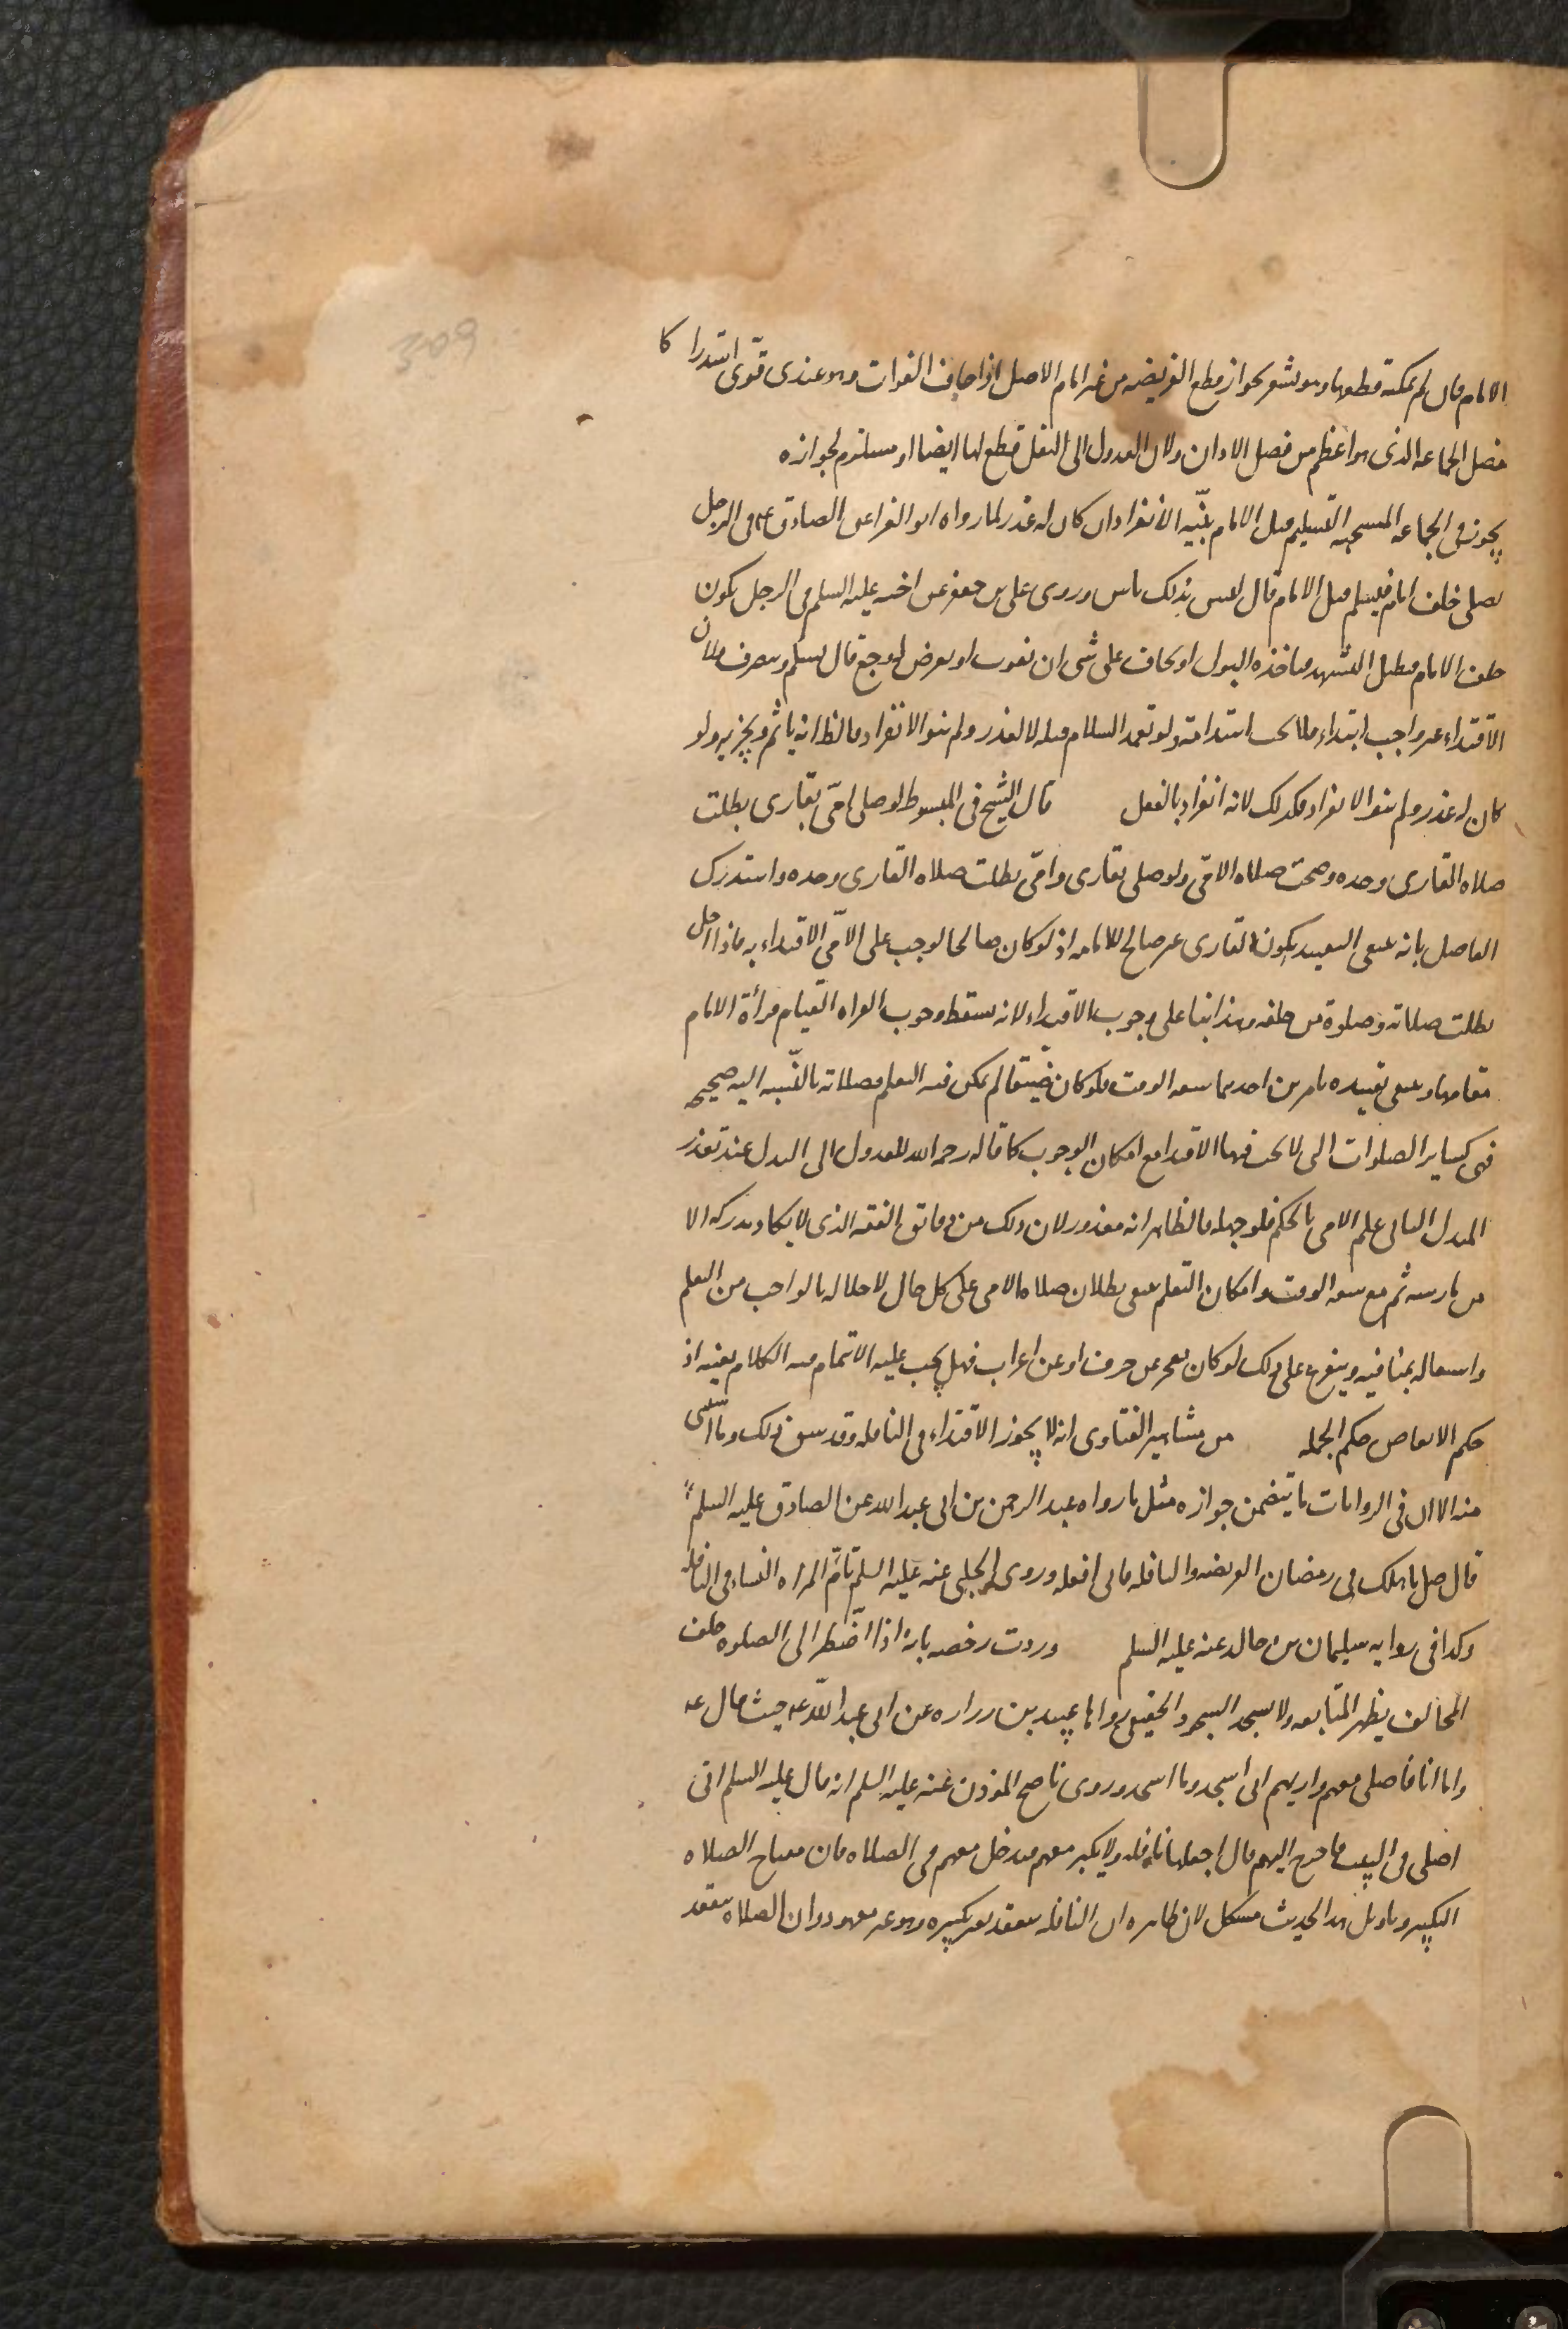 الامام فان لم يمكنه قطعها وهو يشعر بجواز قطع الفريضه من غير امام الاصل اذا خاف الفوات وهو عندى قوّى استدراكا
فضل الجماعه الذى هو اعظم من فضل الاذان ولان العدول الى النفل قطع لها ايضا او مستلزم لجوازه
يجوز فى الجماعه المستحبه التسليم قبل الامام بنيّه الانفراد ان كان له عذر لما رواه ابو المغرا عن الصادق ع فى الرجل
يصلى خلف امام فيسلم قبل الامام قال ليس بذلك باس وروى على بن جعفر عن اخيه عليه السلم فى الرجل يكون
خلف الامام فيطيل التشهد فياخذه البول او يخاف على شى ان يفوت او يعرض له وجع قال يسلم وينصرف ولان
الاقتداء غير واجب ابتداء فلا يجب استدامته ولو تعمد السلام قبله لا لعذر ولم ينو الانفراد فالظ انه ياثم ويجزيه ولو
كان له عذر ولم ينو الانفراد فكذلك لانه انفراد بالفعل قال الشيخ فى المبسوط لو صلى امّى بقارى بطلت
صلاه القارى وحده وصحت صلاه الامّى ولو صلى بقارى وامّى بطلت صلاه القارى وحده واستدرك
الفاضل بانه ينبغى التقييد بكون القارى غير صالح للامامه اذ لو كان صالحا لوجب على الامّى الاقتداء به فاذا اخل
بطلت صلاته وصلوة من خلفه وهذا بنا على وجوب الاقتداء لانه يسقط وجوب القراه لقيام قرأة الامام
مقامها وينبغى تقييده بامرين احدهما سعه الوقت فلو كان ضيّقا لم يمكن فيه التعلم فصلاته بالنسبه اليه صحيحه
فهى كساير الصلوات التى لا يجب فيها الاقتدا مع امكان الوجوب كما قاله رحمه الله للعدول الى البدل عند تعذر
المبدل الثانى علم الامى بالحكم فلو جهله فالظاهر انه معذور لان ذلك من دقائق الفقه الذى لا يكاد يدركه الا
من مارسه ثم مع سعه الوقت وامكان التعلم ينبغى بطلان صلاه الامى على كل حال لاخلاله بالواجب من التعلم
واشتغاله بمنافيه ويتفرع على ذلك لو كان يعجز عن حرف او عن اعراب فهل يجب عليه الائتمام فيه الكلام بعينه اذ
حكم الابعاض حكم الجمله من مشاهير الفتاوى انه لا يجوز الاقتداء فى النافله وقد سبق ذلك وما استثنى
منه الا ان فى الروايات ما يتضمن جوازه مثل ما رواه عبد الرحمن بن ابى عبد الله عن الصادق عليه السلم
قال صل باهلك فى رمضان الفريضه والنافله فانى افعله وروى الحلبى عنه عليه السلم تؤم المراه النساء فى النافله
وكذا فى روايه سليمان بن خالد عنه عليه السلم وردت رخصه بانه اذا اضطر الى الصلوه خلف
المخالف يظهر المتابعه ولا يسجد السجود الحقيقى رواها عبيد بن زراره عن ابى عبد اللّه ع حيث قال ع
واما انا فاصلى معهم واريهم انى اسجد وما اسجد وروى ناصح المؤذن عنه عليه السلم انه قال عليه السلم انى
اصلى فى البيت فاخرج اليهم قال اجعلها نافله ولا يكبر معهم فيدخل معهم فى الصلاه فان مفتاح الصلاه
التكبير وتاويل هذا الحديث مشكل لان ظاهره ان النافله ينعقد بغير تكبيره وهو غير معهود وان الصلاه ينعقد